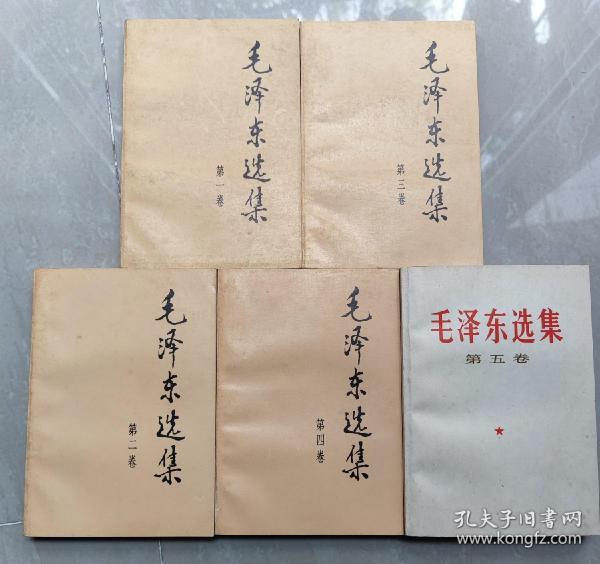 毛泽东选集
第一卷
毛泽东选集
第三卷
毛泽东选集
第二卷
毛泽东选集
第四卷
毛泽东选集
第五卷
孔夫子旧書网
www.kongfz.com